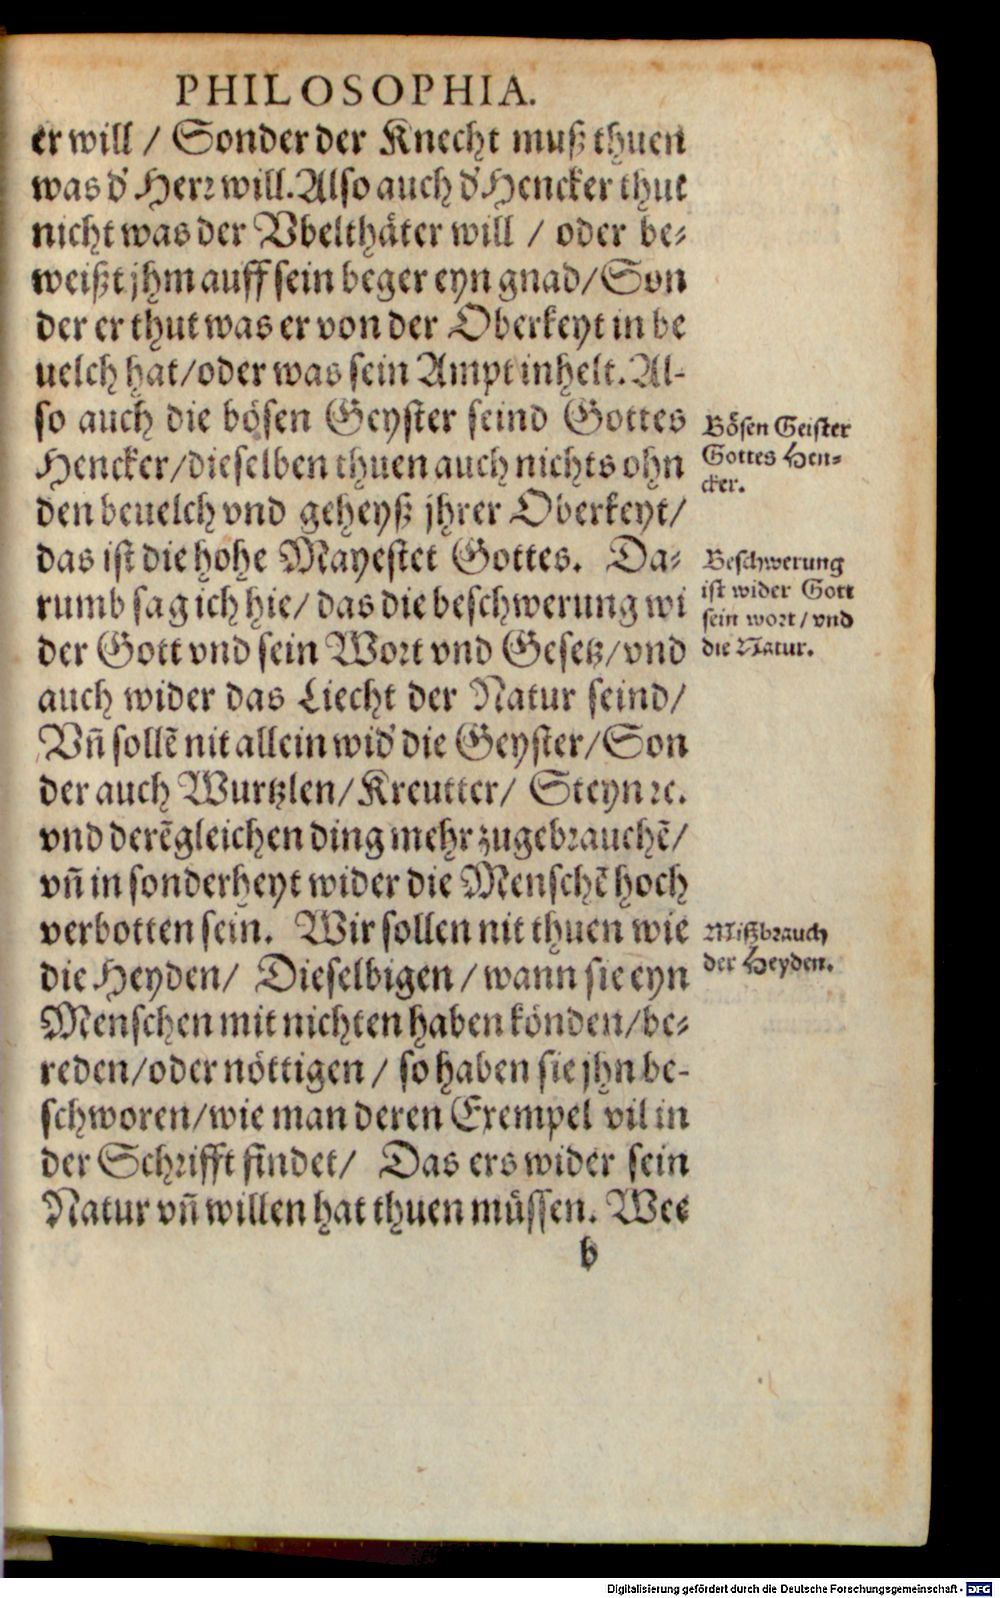 PHILOSOPHIA.
er will / Sonder der Knecht muß thuen
was d' Herr will. Also auch d' Hencker thut
nicht was der Vbelthäter will / oder be⸗
weißt jhm auff sein beger eyn gnad/Son
der er thut was er von der Oberkeyt in be
uelch hat/oder was sein Ampt inhelt. Al-
so auch die bösen Geyster seind Gottes
Hencker/dieselben thuen auch nichts ohn
den beuelch vnd geheyß jhrer Oberkeyt/
das ist die hohe Mayestet Gottes. Da⸗
rumb sag ich hie/ das die beschwerung wi
der Gott vnd sein Wort vnd Gesetz/vnd
auch wider das Liecht der Natur seind/
Vñ sollẽ nit allein wid' die Geyster/Son
der auch Wurtzlen/Kreutter/ Steyn ꝛc.
vnd derẽgleichen ding mehr zugebrauchẽ/
vñ in sonderheyt wider die Menschẽ hoch
verbotten sein. Wir sollen nit thuen wie
die Heyden/ Dieselbigen / wann sie eyn
Menschen mit nichten haben könden/be⸗
reden/oder nöttigen / so haben sie jhn be-
schworen/wie man deren Exempel vil in
der Schrifft findet/ Das ers wider sein
Natur vñ willen hat thuen müssen. Wee
b
Bösen Geister
Gottes Hen⸗
cker.
Beschwerung
ist wider Gott
sein wort / vnd
die Natur.
Mißbrauch
der Heyden.
Digitalisierung gefördert durch die Deutsche Forschungsgemeinschaft - DFG